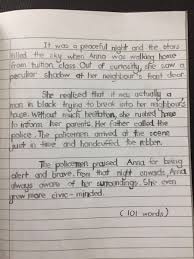 It was a peaceful night and the stars
filled the sky when Anna was walking home
from tuition class. Out of curiosity, she saw a
peculiar shadow at her neighbour's front door.
She realised that it was actually a
man in black trying to break into her neighbour's
house. Without much hesitation, she rushed home
to inform her parents. Her father called the
police. The policemen arrived at the scene
just in time and handcuffed the robber.
The policemen praised Anna for being
alert and brave. From that night onwards, Anna
always aware of her surroundings. She even
grow more civic-minded.
(101 words)